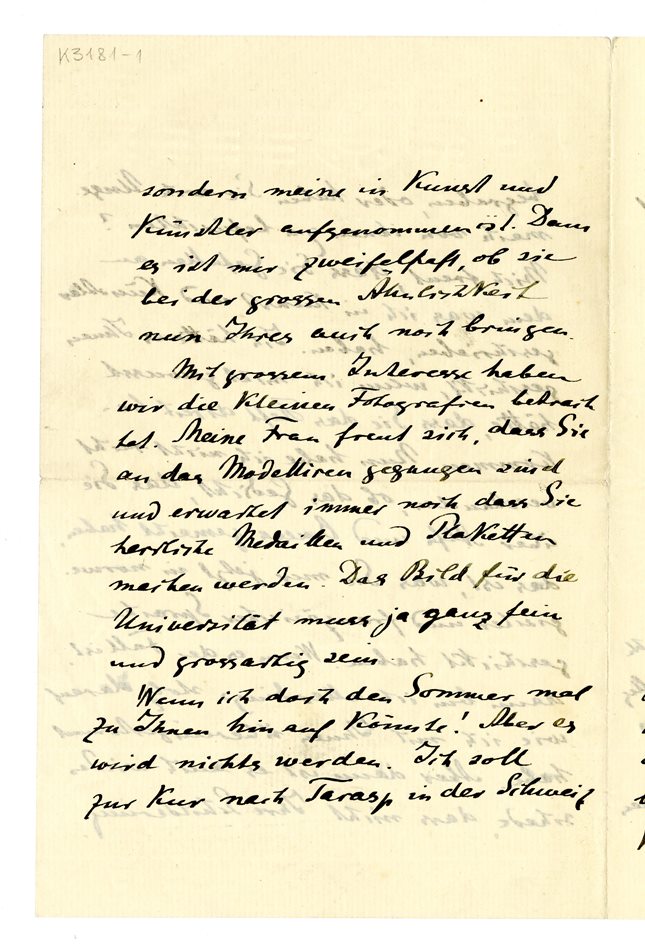 K3181-1
sondern meine in Kunst und
Künstler aufgenommen ist. Dann
es ist mir zweifelhaft, ob sie
bei der grossen Ähnlichkeit
nun Ihres auch noch bringen.
Mit grossem Interesse haben
wir die Kleinen Fotografien betrach
tet. Meine Frau freut sich, dass Sie
an das Modelliren gegangen sind
und erwartet immer noch dass Sie
herrliche Medaillen und Plaketten
machen werden. Das Bild für die
Universität muss ja ganz fein
und grossartig sein.
Wenn ich doch den Sommer mal
zu Ihnen hinauf könnte! Aber es
wird nichts werden. Ich soll
zur Kur nach Tarasp in der Schweiz